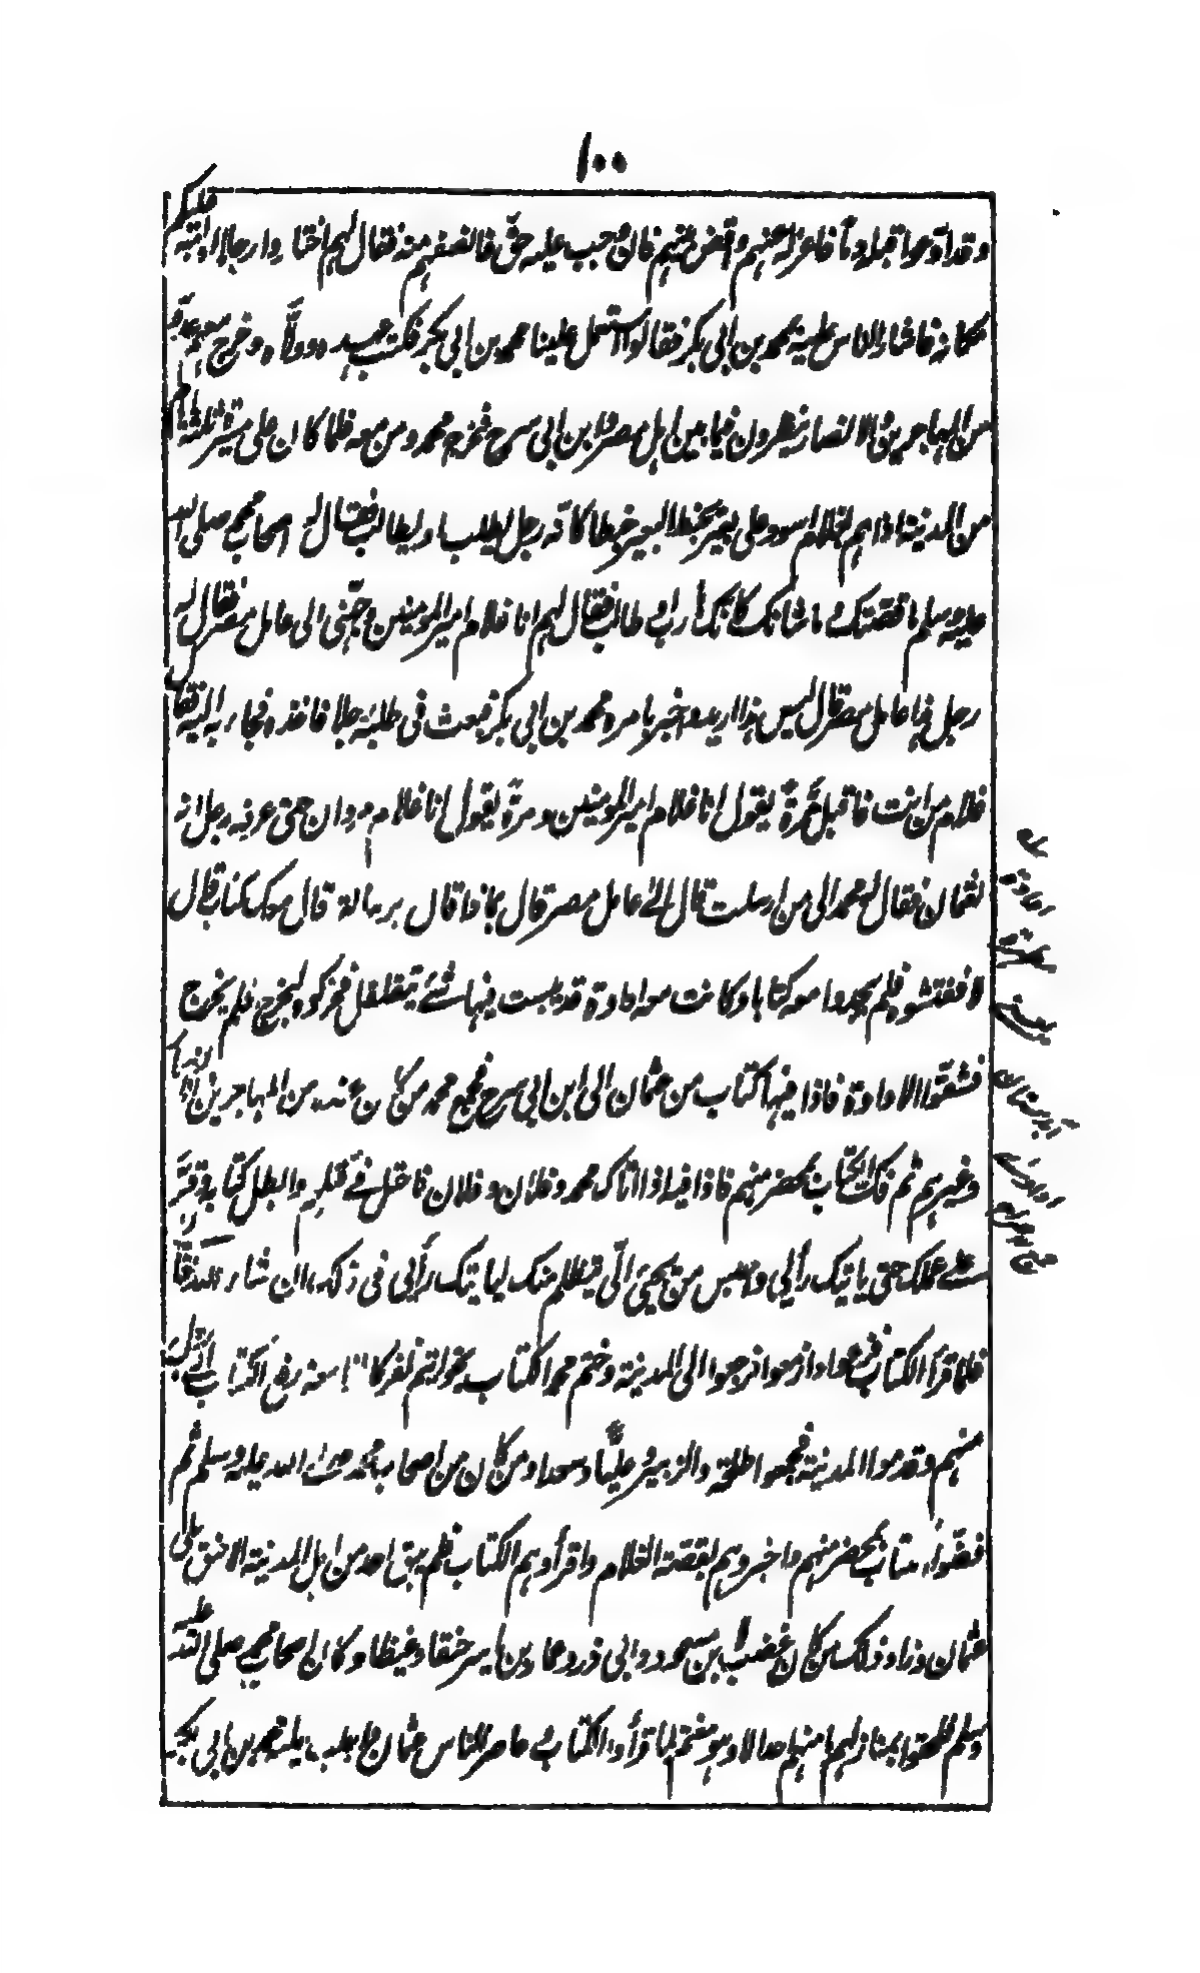 ١٠٠
وقد ادّعوا قبله دمًا فاعزله عنهم واقض بينهم فان وجب عليه حق فانصفهم منه فقال لهم اختاروا رجلا اوليه عليكم
مكانه فاشار الناس عليه بمحمد بن ابي بكر فقالوا استعمل علينا محمد بن ابي بكر فكتب عهده وولاه وخرج معهم عدد
من المهاجرين والانصار ينظرون فيما بين اهل مصر وابن ابي سرح فخرج محمد ومن معه فلما كان على مسيرة ثلثة ايام
من المدينة اذا هم بغلام اسود على بعير يخبط البعير خبطا كانه رجل يطلب او يطالب فقال له اصحاب محمد صلى الله
عليه وسلم ما قصتك وما شانك كانك هارب او طالب فقال لهم انا غلام امير المؤمنين وجهني الى عامل مصر فقال له
رجل هذا عامل مصر قال ليس هذا اريد واخبر بامره محمد بن ابي بكر فبعث في طلبه رجلا فاخذه فجاء به اليه فقال
غلام من انت فاقبل مرة يقول انا غلام امير المؤمنين ومرة يقول انا غلام مروان حتى عرفه رجل انه
لعثمان فقال له محمد الى من ارسلت قال الى عامل مصر قال بماذا قال برسالة قال معك كتاب قال
لا ففتشوه فلم يجدوا معه كتابا وكانت معه اداوة قد يبست فيها شئ يتقلقل فحركوه ليخرج فلم يخرج
فشقوا الاداوة فاذا فيها كتاب من عثمان الى ابن ابي سرح فجمع محمد من كان عنده من المهاجرين والانصار
وغيرهم ثم فك الكتاب بمحضر منهم فاذا فيه اذا اتاك محمد وفلان وفلان فاحتل في قتلهم وابطل كتابه وقر
على عملك حتى ياتيك رأيي واحبس من يجئ الّى يتظلم منك لياتيك رأيي في ذلك ان شاء الله
فلما قرأ الكتاب فزعوا وازمعوا فرجعوا الى المدينة وختم محمد الكتاب بخواتم نفر كانوا معه ودفع الكتاب الى رجل
منهم وقدموا المدينة فجمعوا طلحة والزبير وعليًا وسعدا ومن كان من اصحاب محمد صلى الله عليه وسلم ثم
فضوا الكتاب بمحضر منهم واخبروهم بقصة الغلام واقرأوهم الكتاب فلم يبق احد من اهل المدينة الا حنق على
عثمان وزاد ذلك من كان غضب لابن مسعود وابي ذر وعمار بن ياسر حنقا وغيظا وكان اصحاب محمد صلى الله عليه
وسلم فلحقوا بمنازلهم ما منهم احد الا وهو مغتم لما قرأوا الكتاب وحاصر الناس عثمان واجلب عليه محمد بن ابي بكر